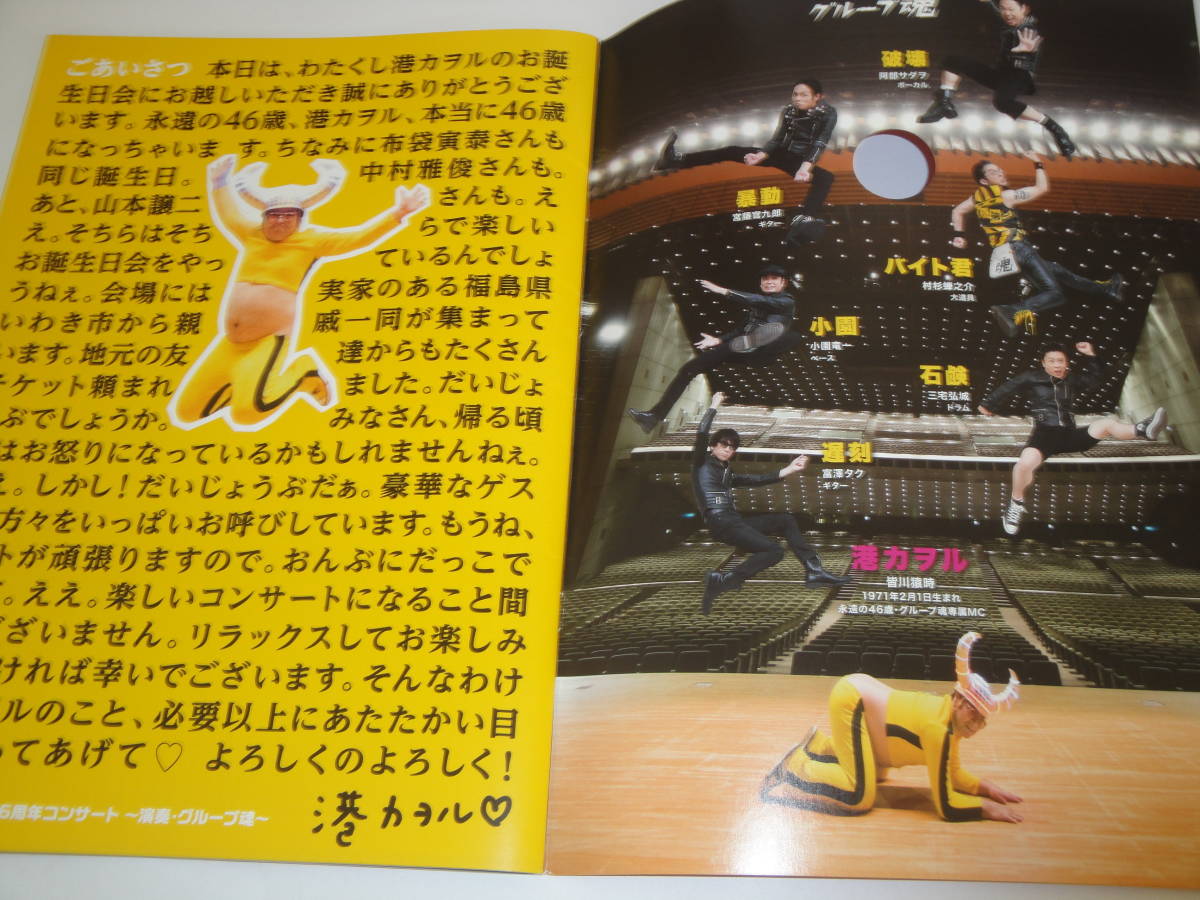 ごあいさつ 本日は、わたくし港カヲルのお誕
生日会にお越しいただき誠にありがとうござ
います。永遠の46歳、港カヲル、本当に46歳
になっちゃいま す。ちなみに布袋寅泰さんも
同じ誕生日。 中村雅俊さんも。
あと、山本譲二 さんも。え
え。そちらはそち らで楽しい
お誕生日会をやっ ているんでしょ
うねぇ。会場には 実家のある福島県
いわき市から親 戚一同が集まって
います。地元の友 達からもたくさん
チケット頼まれ ました。だいじょ
ぶでしょうか。 みなさん、帰る頃
はお怒りになっているかもしれませんねぇ。
え。しかし!だいじょうぶだぁ。豪華なゲス
方々をいっぱいお呼びしています。もうね、
トが頑張りますので。おんぶにだっこで
。ええ。楽しいコンサートになること間
ございません。リラックスしてお楽しみ
ければ幸いでございます。そんなわけ
ルのこと、必要以上にあたたかい目
ってあげて♡ よろしくのよろしく!
港カヲル♡
6周年コンサート 〜演奏・グループ魂〜
グループ魂
破壊
阿部サダヲ
ボーカル
暴動
宮藤官九郎
ギター
バイト君
村杉蝉之介
大道具
小園
小園竜一
ベース
石鹸
三宅弘城
ドラム
遅刻
富澤タク
ギター
港カヲル
皆川猿時
1971年2月1日生まれ
永遠の46歳・グループ魂専属MC